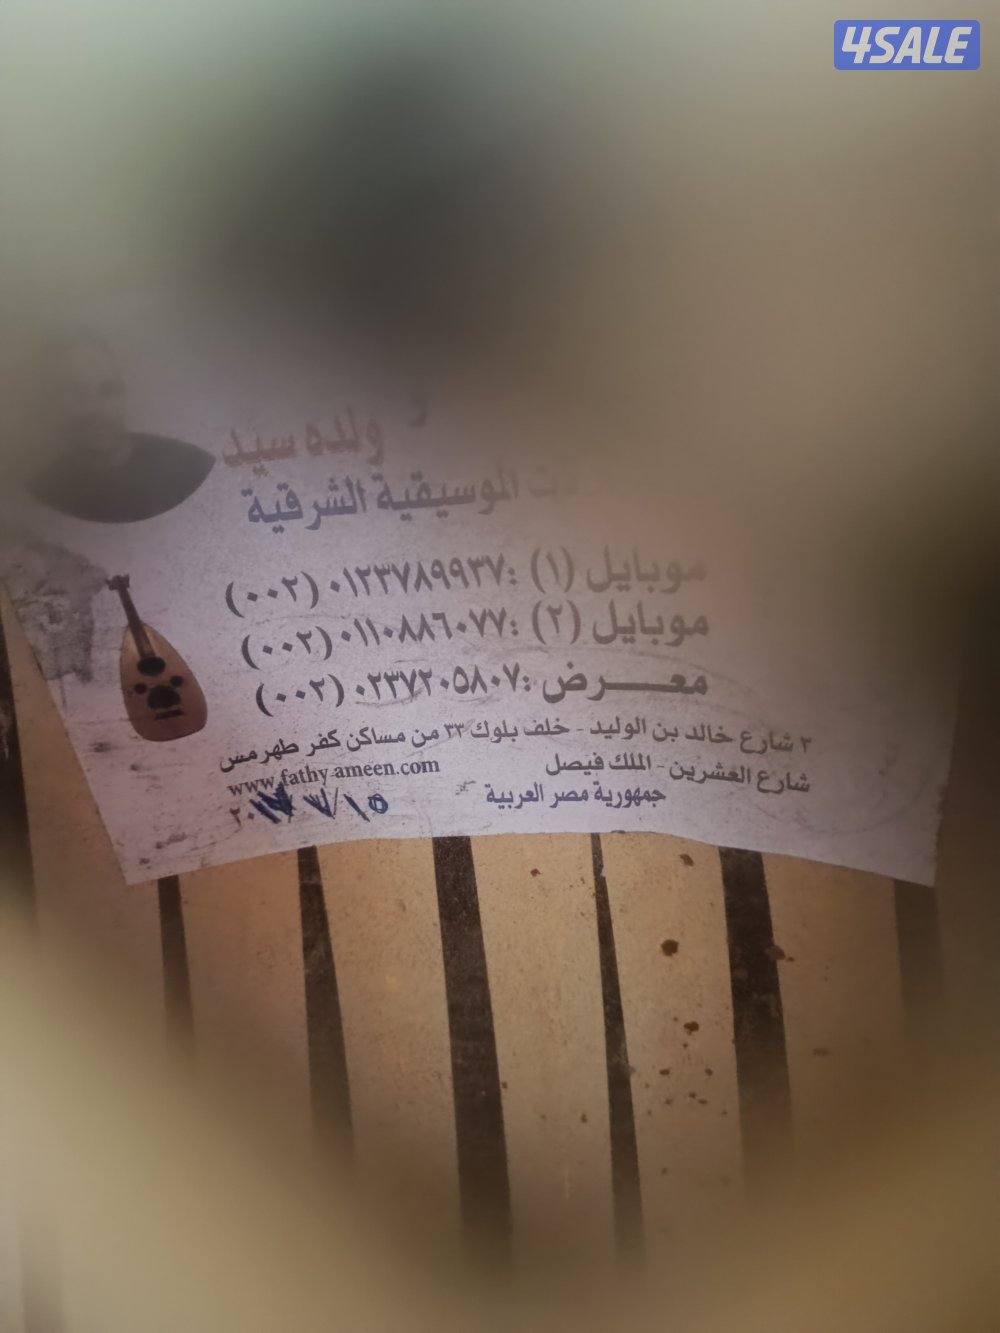 4SALE
ولده سيد
الموسيقية الشرقية
موبايل (١) : ٠١٢٣٧٨٩٩٣٧ (٠٠٢)
موبايل (٢) : ٠١١٠٨٨٦٠٧٧ (٠٠٢)
معـــرض : ٠٢٣٧٢٠٥٨٠٧ (٠٠٢)
٣ شارع خالد بن الوليد - خلف بلوك ٣٣ من مساكن كفر طهرمس
شارع العشرين - الملك فيصل
www.fathy-ameen.com
جمهورية مصر العربية